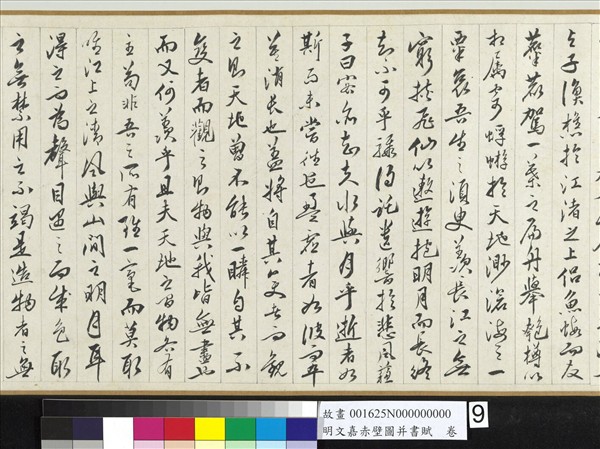 與子漁樵於江渚之上侶魚蝦而友
麋鹿駕一葉之扁舟舉匏樽以
相屬寄蜉蝣於天地渺滄海之一
粟哀吾生之須臾羨長江之無
窮挾飛仙以遨遊抱明月而長終
知不可乎驟得託遺響於悲風蘇
子曰客亦知夫水與月乎逝者如
斯而未嘗往也盈虛者如彼而卒
莫消長也蓋將自其變者而觀
之則天地曾不能以一瞬自其不
變者而觀之則物與我皆無盡也
而又何羨乎且夫天地之間物各有
主苟非吾之所有雖一毫而莫取
惟江上之清風與山間之明月耳
得之而為聲目遇之而成色取
之無禁用之不竭是造物者之無
故畫 001625N000000000
明文嘉赤壁圖并書賦 卷
9